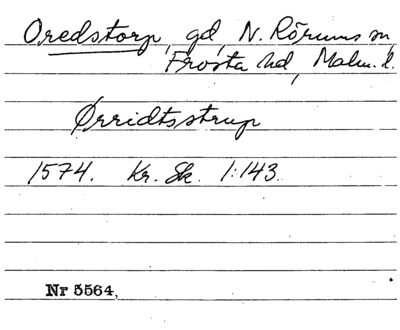 Oredstorp, gd, N. Rörums sn,
Frosta hd, Malm. l.
Ørridtsstrup
1574. Kr. Sk. 1:143.
Nr 5564,